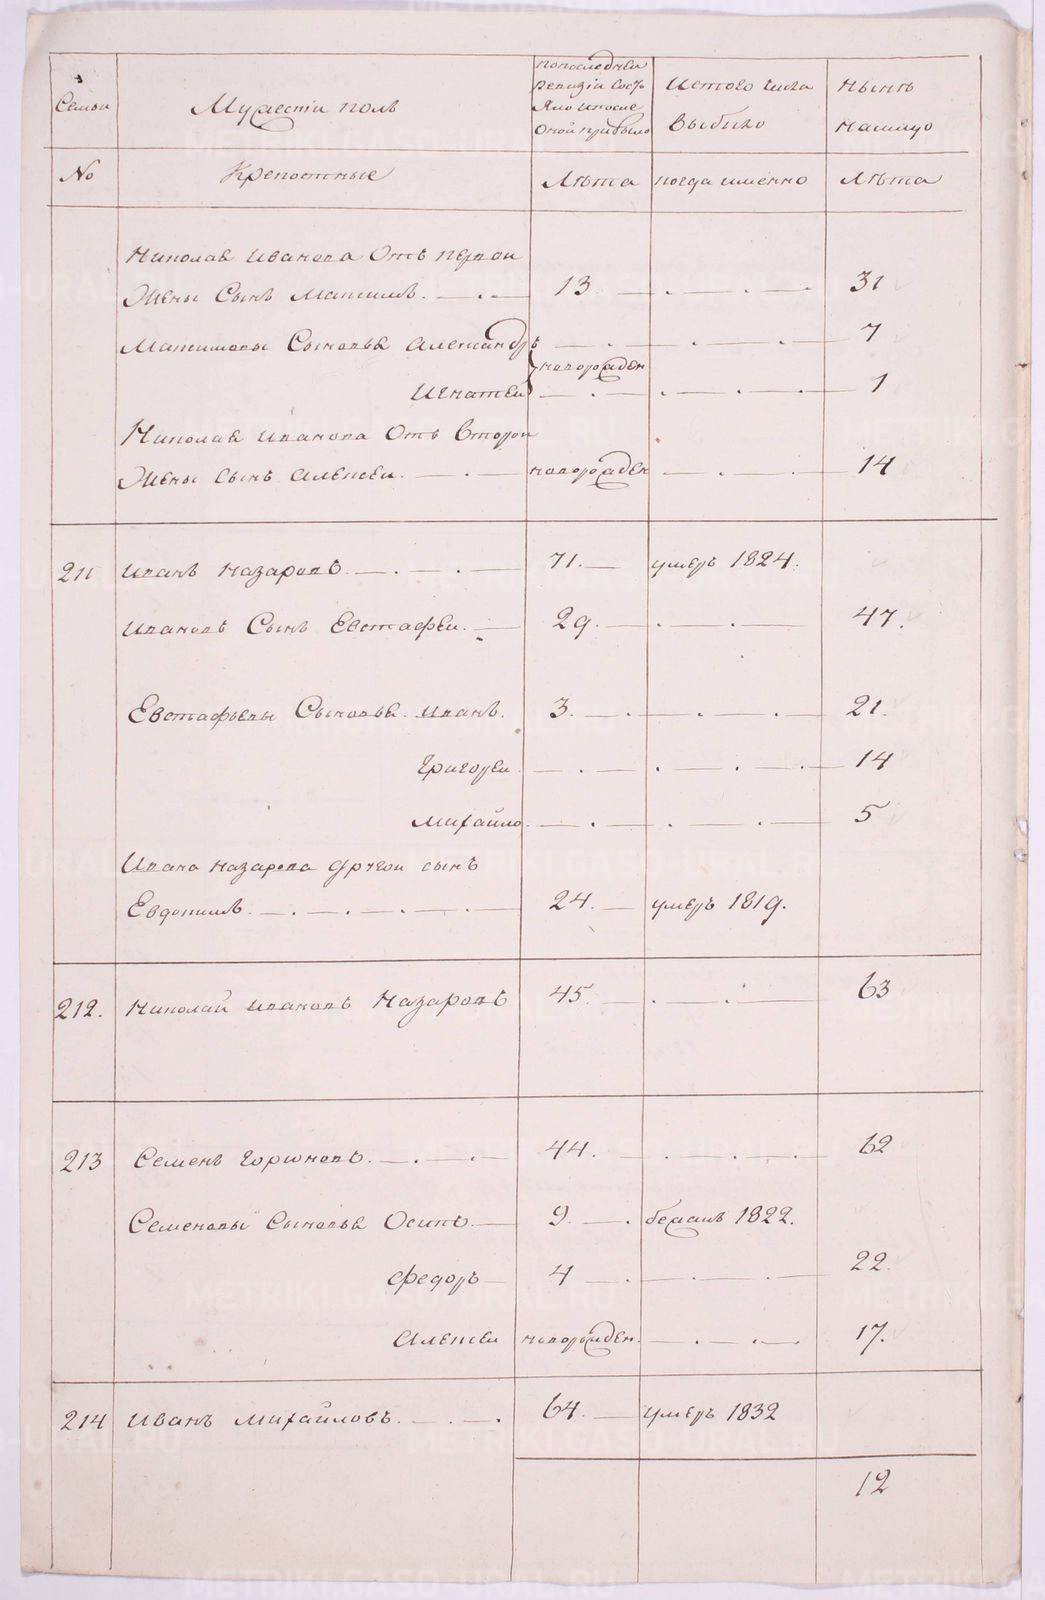 Семьи
Мужескiй полъ
по последней
Ревизiи Сос%
яло и после
оной прибыло
Изтого числа
Выбыло
Нынѣ
На лицо
No
Крепостные
Лѣта
когда именно
Лѣта
Николая Иванова Отъ первои
Жены Сынъ Максимъ. 13 31
Максимовы Сыновья Александръ 7
новорожден
Игнатеи 1
Николая Иванова Отъ второи
Жены Сынъ Алексеи. новорожден 14
211 Иванъ Назаровъ 71. умеръ 1824.
Ивановъ Сынъ Евстафеи. 29. 47.
Евстафьевы Сыновья Иванъ. 3. 21.
Григореи 14
Михайло 5
Ивана Назарова другои сынъ
Евдокимъ. 24. умеръ 1819.
212. Николай Ивановъ Назаровъ 45. 63
213 Семенъ Горюновъ. 44. 62
Семеновы Сыновья Осипъ. 9. бежалъ 1822.
Федоръ 4 22.
Алексеи новорожден. 17.
214 Иванъ Михайловъ. 64. умеръ 1832
12
METRIKI.GASO-URAL.RU